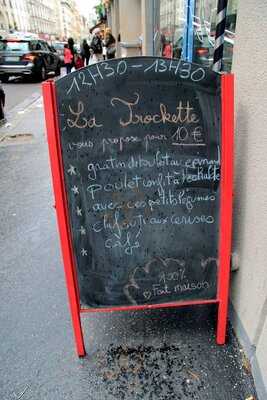 12H30 - 13H30
La Trockette
vous propose pour 10 €
gratin de boulot au
poulet confit à
avec ces petits légumes
clafoutis aux cerises
café
100%
Fait maison